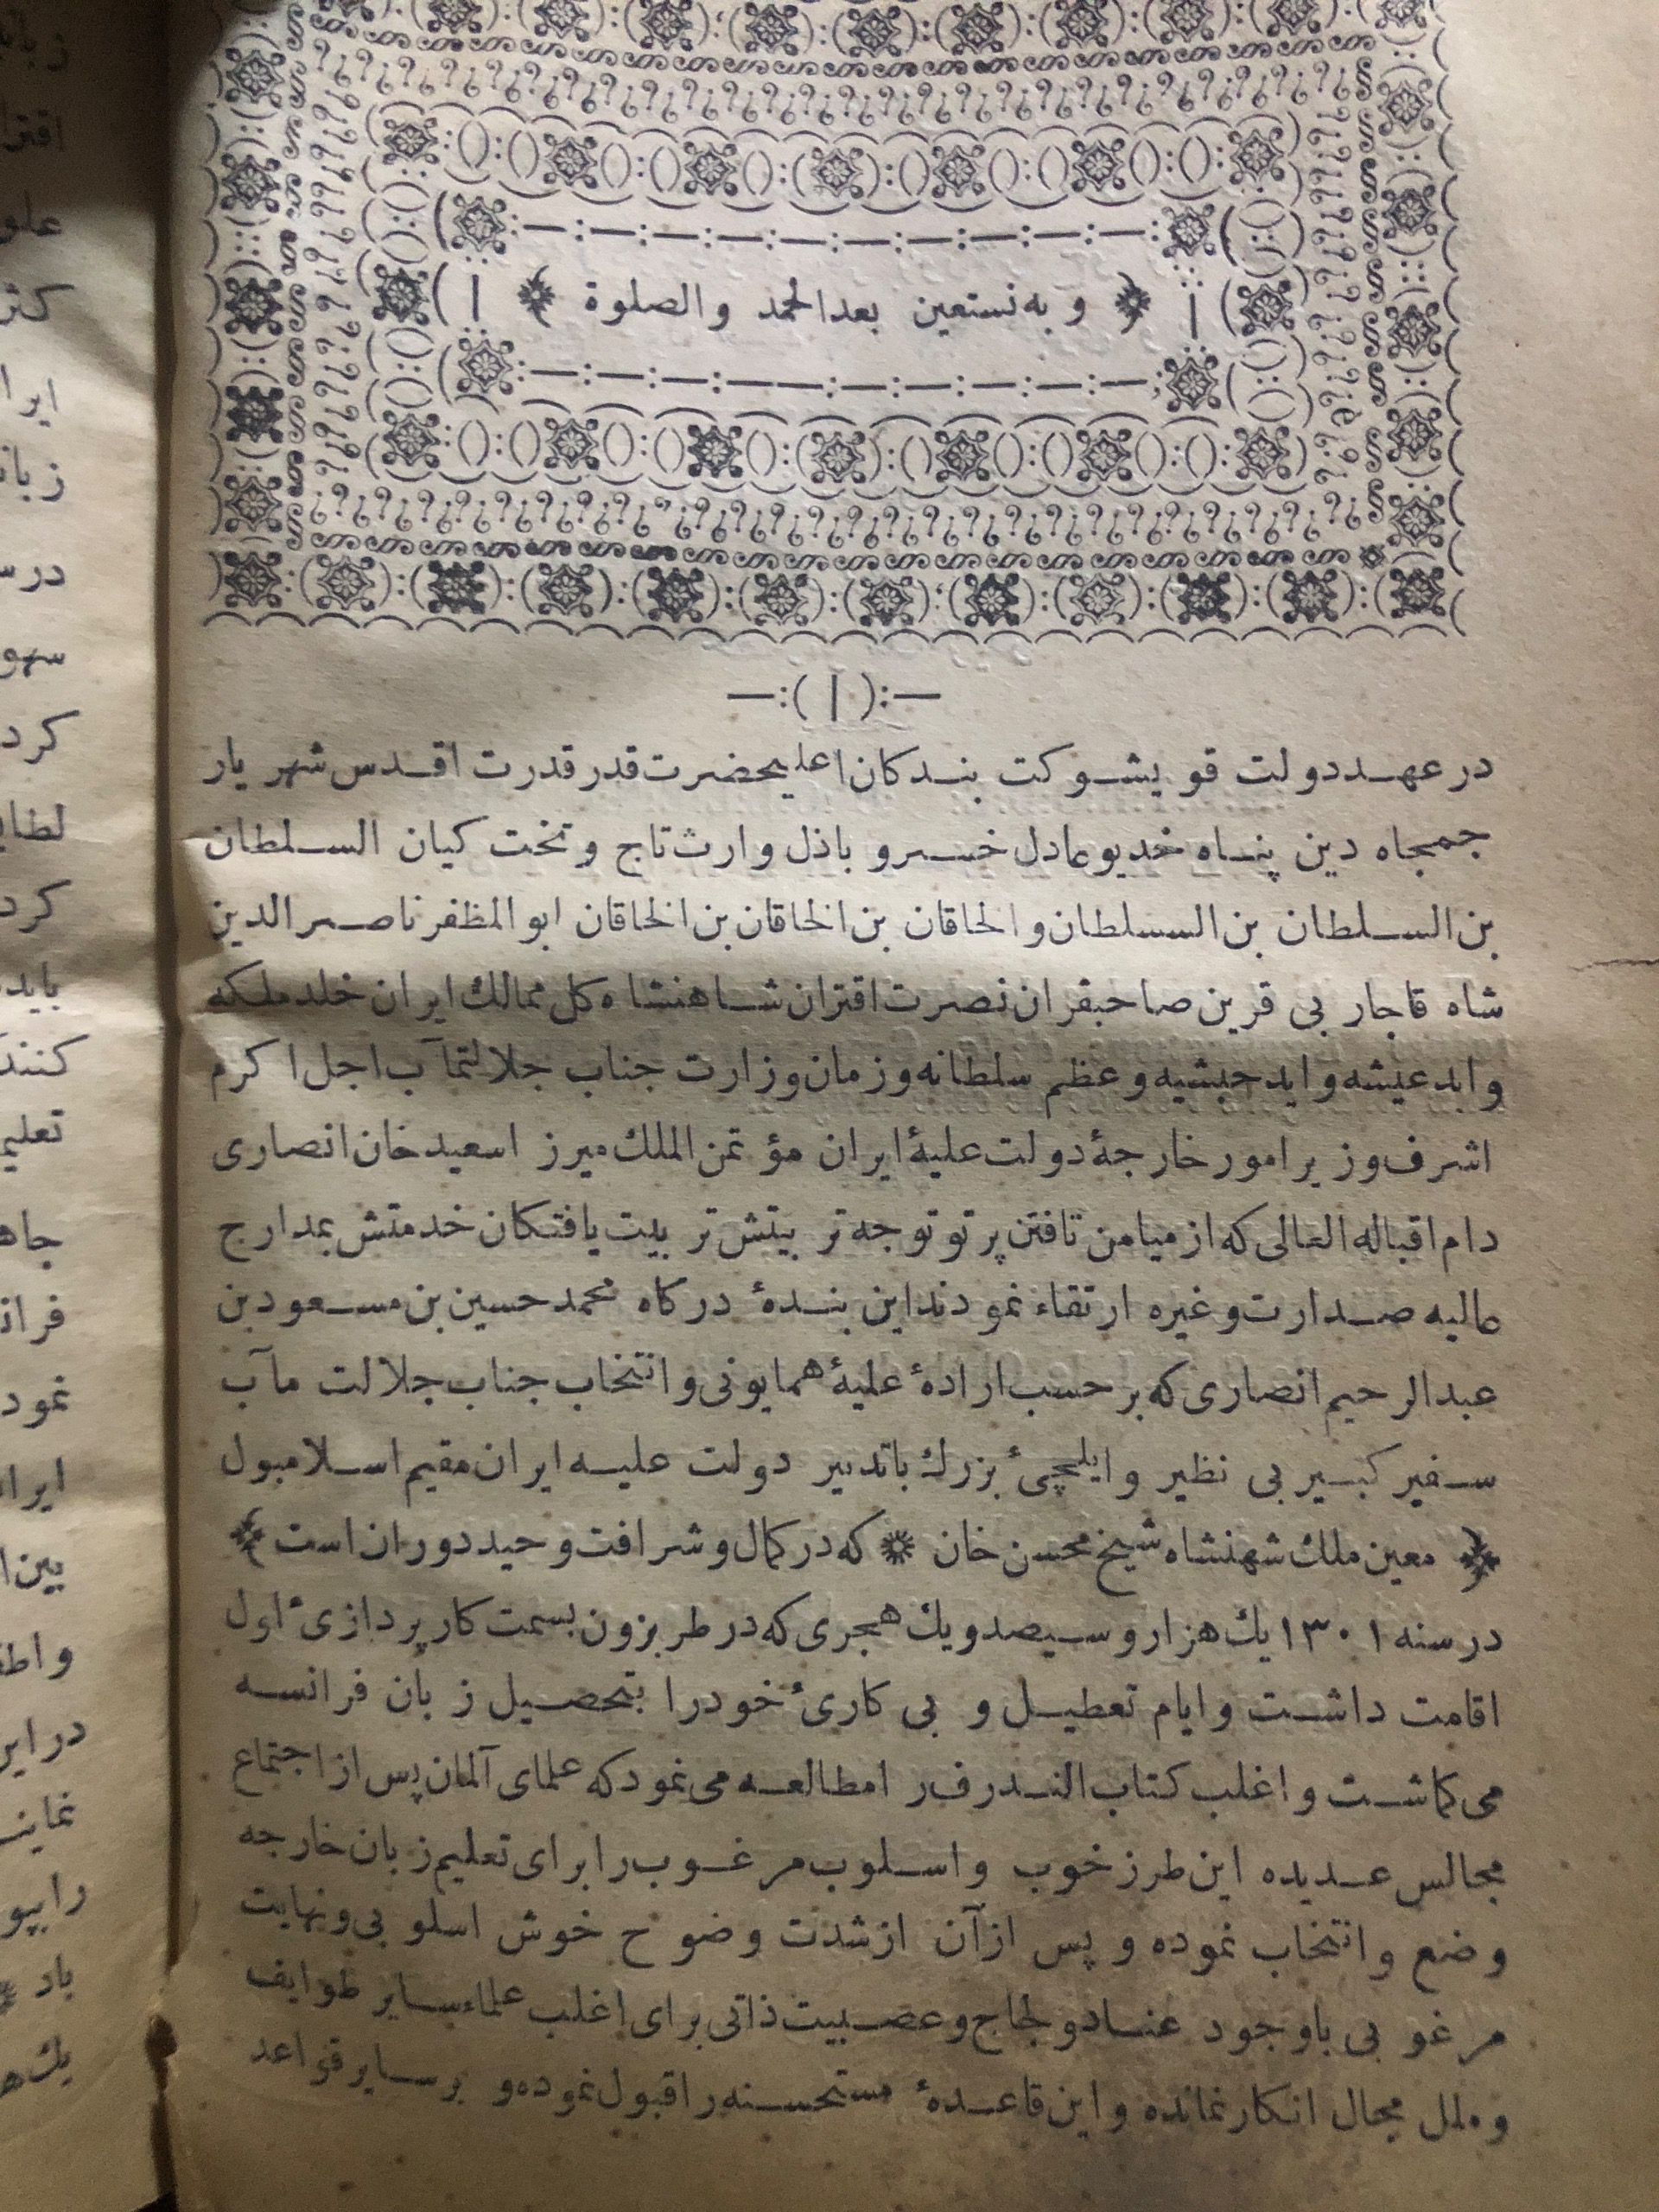 و به نستعین بعد الحمد والصلوة
در عهد دولت قویشوکت بندکان اعلیحضرت قدر قدرت اقدس شهریار
جمجاه دین پناه خدیو عادل خسرو باذل وارث تاج و تخت کیان السلطان
بن السلطان بن السسلطان و الخاقان بن الخاقان بن الخاقان ابو المظفر ناصر الدین
شاه قاجار بی قرین صاحبقران نصرت اقتران شاهنشاه کل ممالك ایران خلد ملکه
و ابد عیشه و اید حبشیه و عظم سلطانه و زمان وزارت جناب جلالتمآب اجل اکرم
اشرف وزیر امور خارجهٔ دولت علیهٔ ایران مؤتمن الملك میرزا سعید خان انصاری
دام اقباله العالی که از میامن تافتن پرتو توجه تربیتش تربیت یافتکان خدمتش بمدارج
عالیه صدارت و غیره ارتقاء نمودند این بندهٔ درکاه محمد حسین بن مسعود بن
عبدالرحیم انصاری که بر حسب ارادهٔ علیهٔ همایونی و انتخاب جناب جلالت مآب
سفیر کبیر بی نظیر و ایلچیٔ بزرك باتدبیر دولت علیه ایران مقیم اسلامبول
معین ملك شهنشاه شیخ محسن خان که در کمال و شرافت وحید دوران است
در سنه ۱۳۰۱ یك هزار و سیصد و یك هجری که در طربزون بسمت کارپردازیٔ اول
اقامت داشت و ایام تعطیل و بی کاریٔ خود را بتحصیل زبان فرانسه
می کماشت و اغلب کتاب الندرف را مطالعه می نمود که علمای آلمان پس از اجتماع
مجالس عدیده این طرز خوب و اسلوب مرغوب را برای تعلیم زبان خارجه
وضع و انتخاب نموده و پس از آن از شدت وضوح خوش اسلوبی و نهایت
مرغوبی باوجود عناد و لجاج و عصبیت ذاتی برای اغلب علماء سایر طوایف
و ملل مجال انکار نمانده و این قاعدهٔ مستحسنه را قبول نموده و بر سایر قواعد